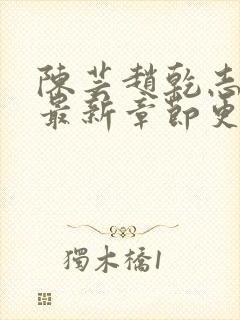 陳芸趙乾志
最新章節更
獨木橋1